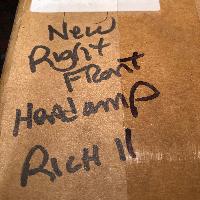 New
Right
Front
Headlamp
RICH 11